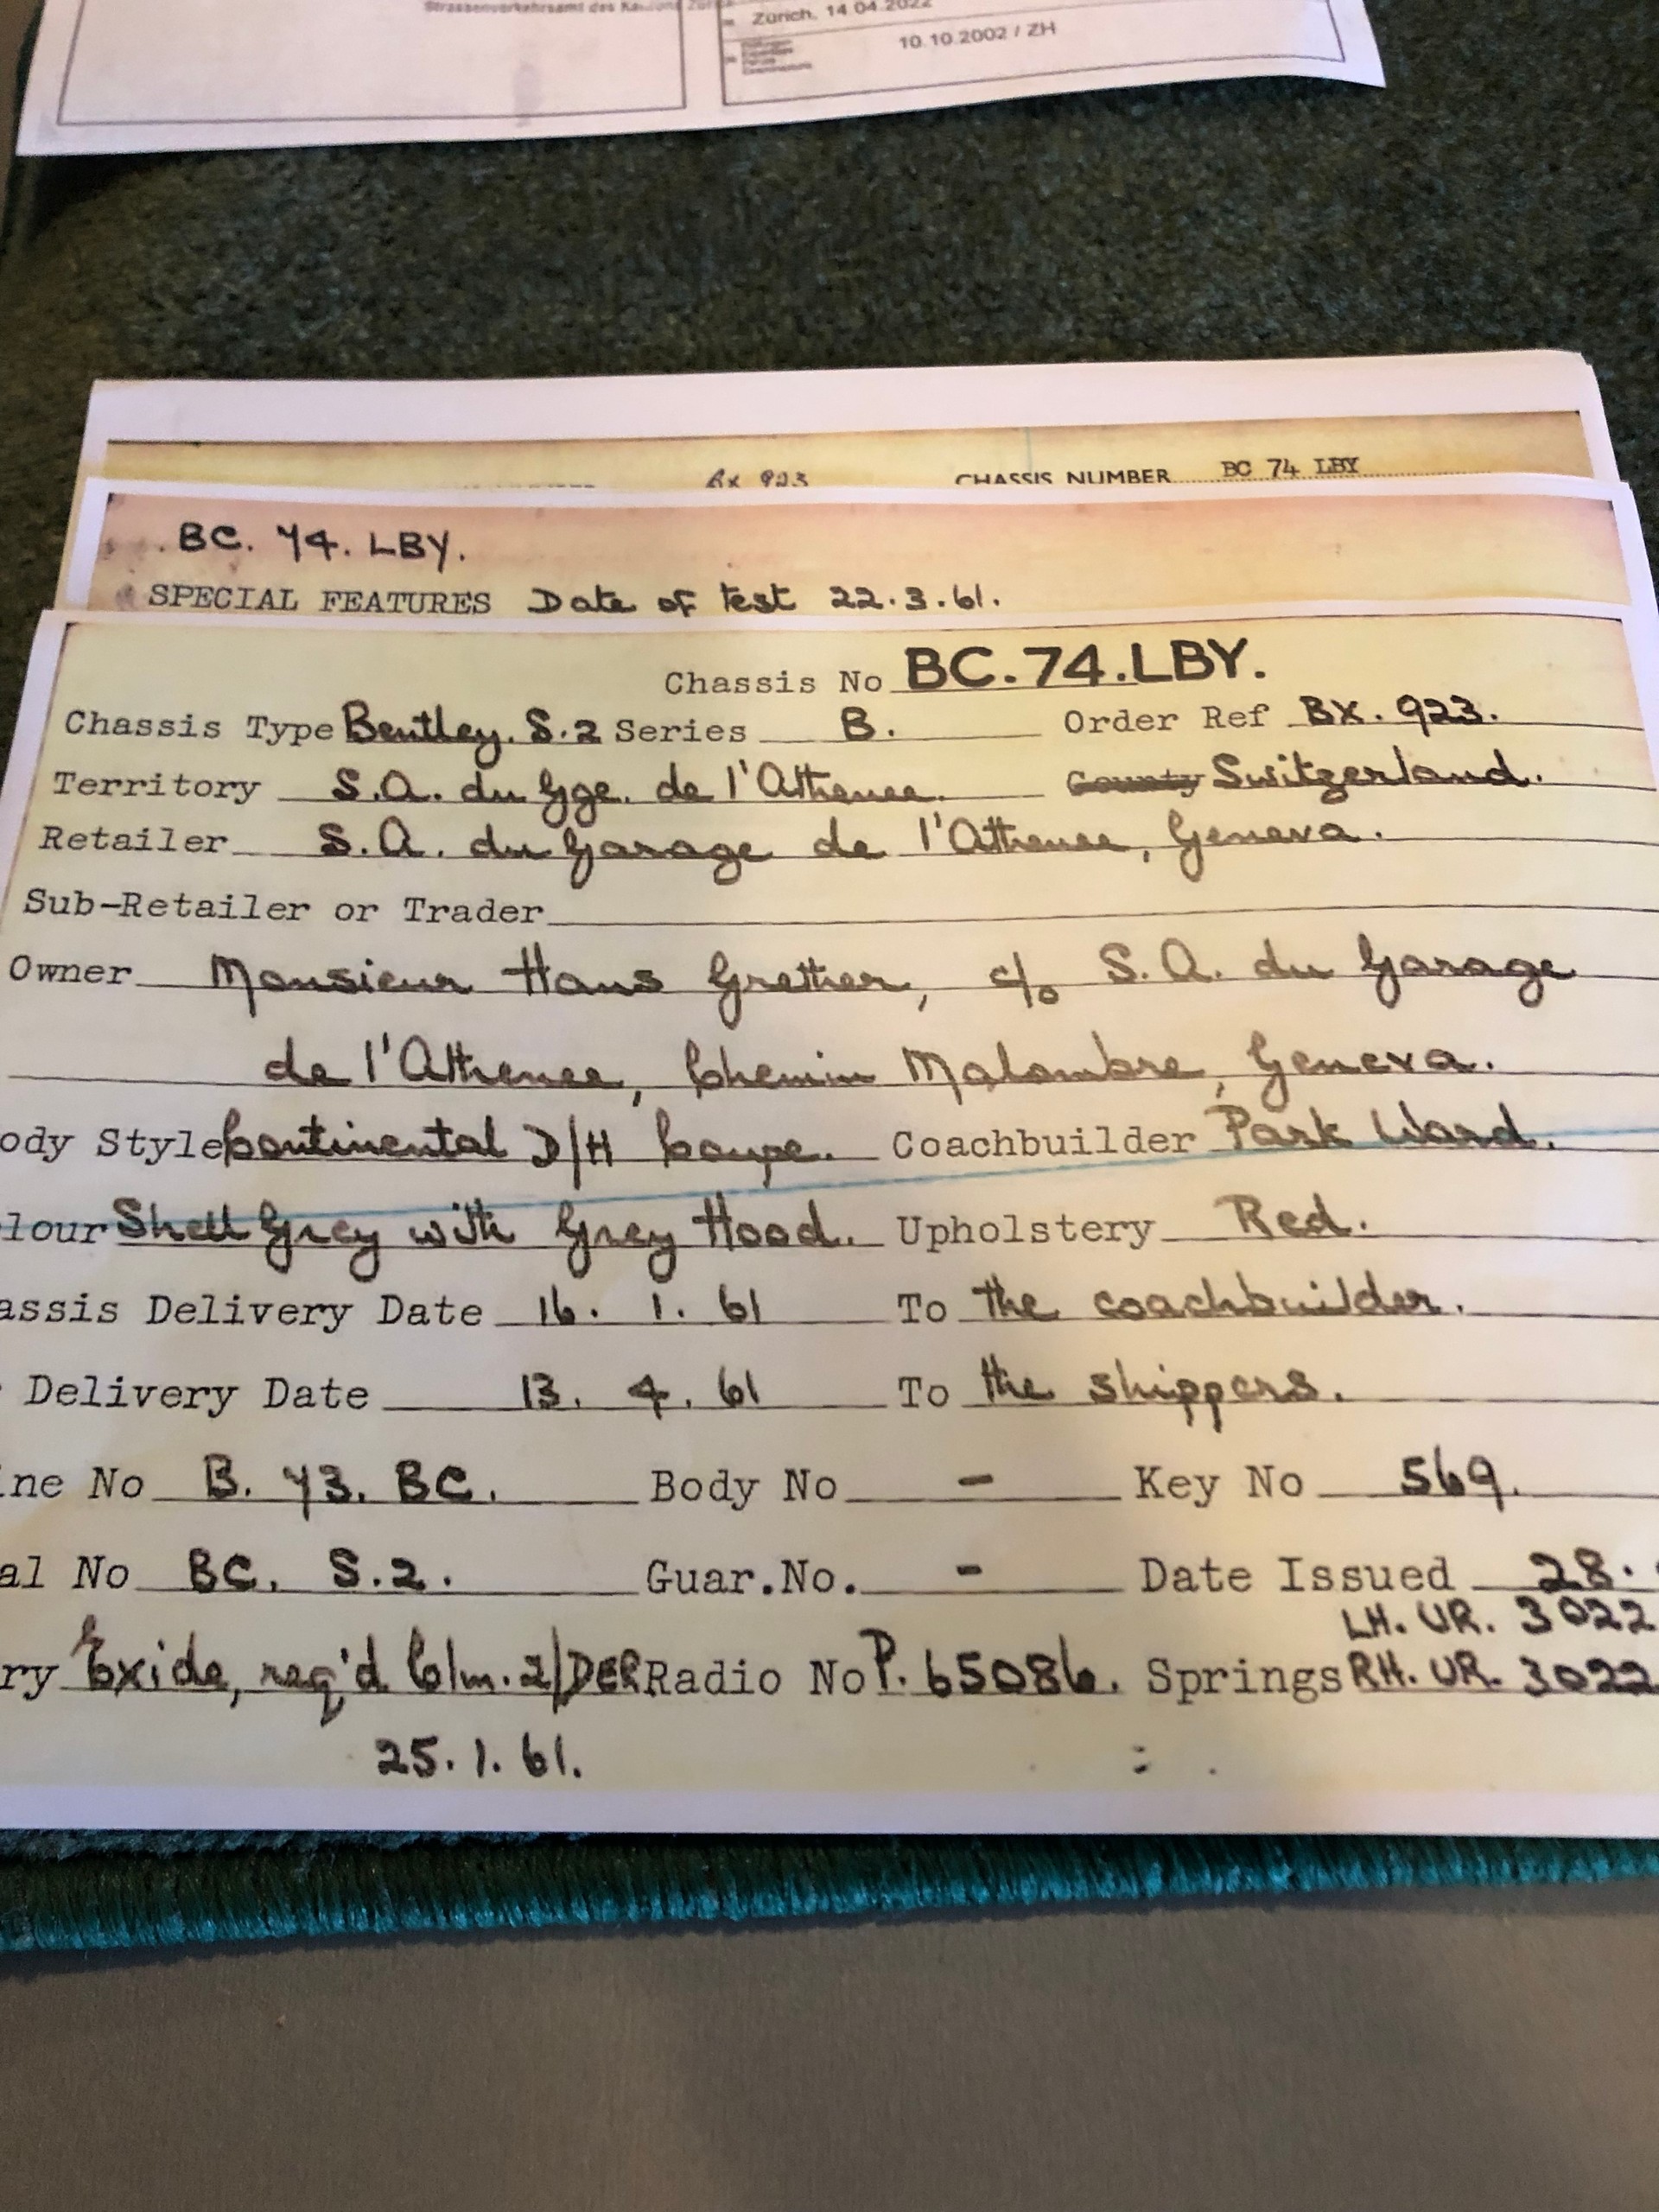 Strassenverkehrsamt des
Zürich, 14.04.2022
10.10.2002 / ZH
Bx 923 CHASSIS NUMBER BC 74 LBY
BC. 74. LBY.
SPECIAL FEATURES Date of test 22.3.61.
Chassis No BC.74.LBY.
Chassis Type Bentley. S.2 Series B. Order Ref BX. 923.
Territory S.A. du Gge. de l'Athenee. County Switzerland.
Retailer S.A. du Garage de l'Athenee, Geneva.
Sub-Retailer or Trader
Owner Monsieur Hans Grether, c/o S.A. du Garage
de l'Athenee, Chemin Malombre, Geneva.
ody Style Continental D/H Coupe. Coachbuilder Park Ward.
lour Shell Grey with Grey Hood. Upholstery Red.
assis Delivery Date 16. 1. 61 To the coachbuilder.
Delivery Date 13. 4. 61 To the shippers.
ine No B. 73. BC. Body No - Key No 569.
al No BC. S.2. Guar.No. - Date Issued 28.
LH. UR. 3022
ry Exide, req'd Clm. 2/DER Radio No P. 65086. Springs RH. UR. 3022
25.1.61.